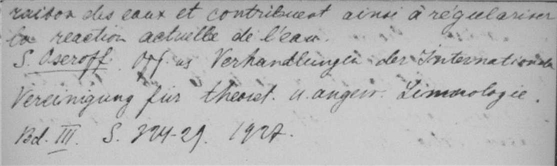 raison des eaux et contribuent ainsi à régulariser
la reaction actuelle de l'eau.
S. Oseroff. aus Verhandlungen der Internationalen
Vereinigung für theoret. u. angew. Limnologie.
Bd. III. S. 324-29. 1927.